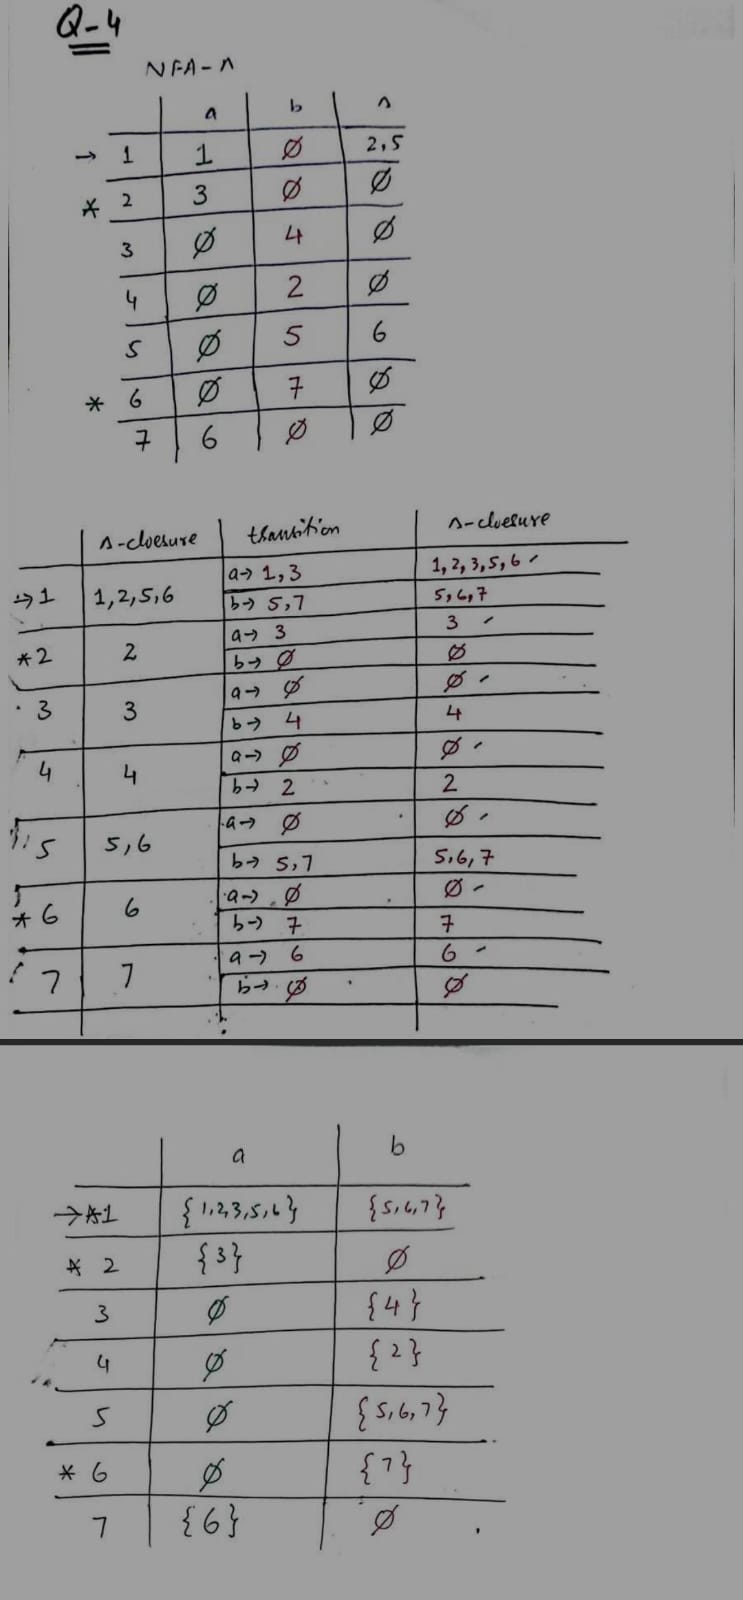 Q-4
NFA-Λ
a b Λ
→ 1 1 Ø 2,5
* 2 3 Ø Ø
3 Ø 4 Ø
4 Ø 2 Ø
5 Ø 5 6
* 6 Ø 7 Ø
7 6 Ø Ø
Λ-cloesure transition Λ-cloesure
→1 1,2,5,6 a→ 1,3 1,2,3,5,6
b→ 5,7 5,6,7
*2 2 a→ 3 3
b→ Ø Ø
3 3 a→ Ø Ø
b→ 4 4
4 4 a→ Ø Ø
b→ 2 2
5 5,6 a→ Ø Ø
b→ 5,7 5,6,7
* 6 6 a→ Ø Ø
b→ 7 7
7 7 a→ 6 6
b→ Ø Ø
a b
→*1 {1,2,3,5,6} {5,6,7}
* 2 {3} Ø
3 Ø {4}
4 Ø {2}
5 Ø {5,6,7}
* 6 Ø {7}
7 {6} Ø